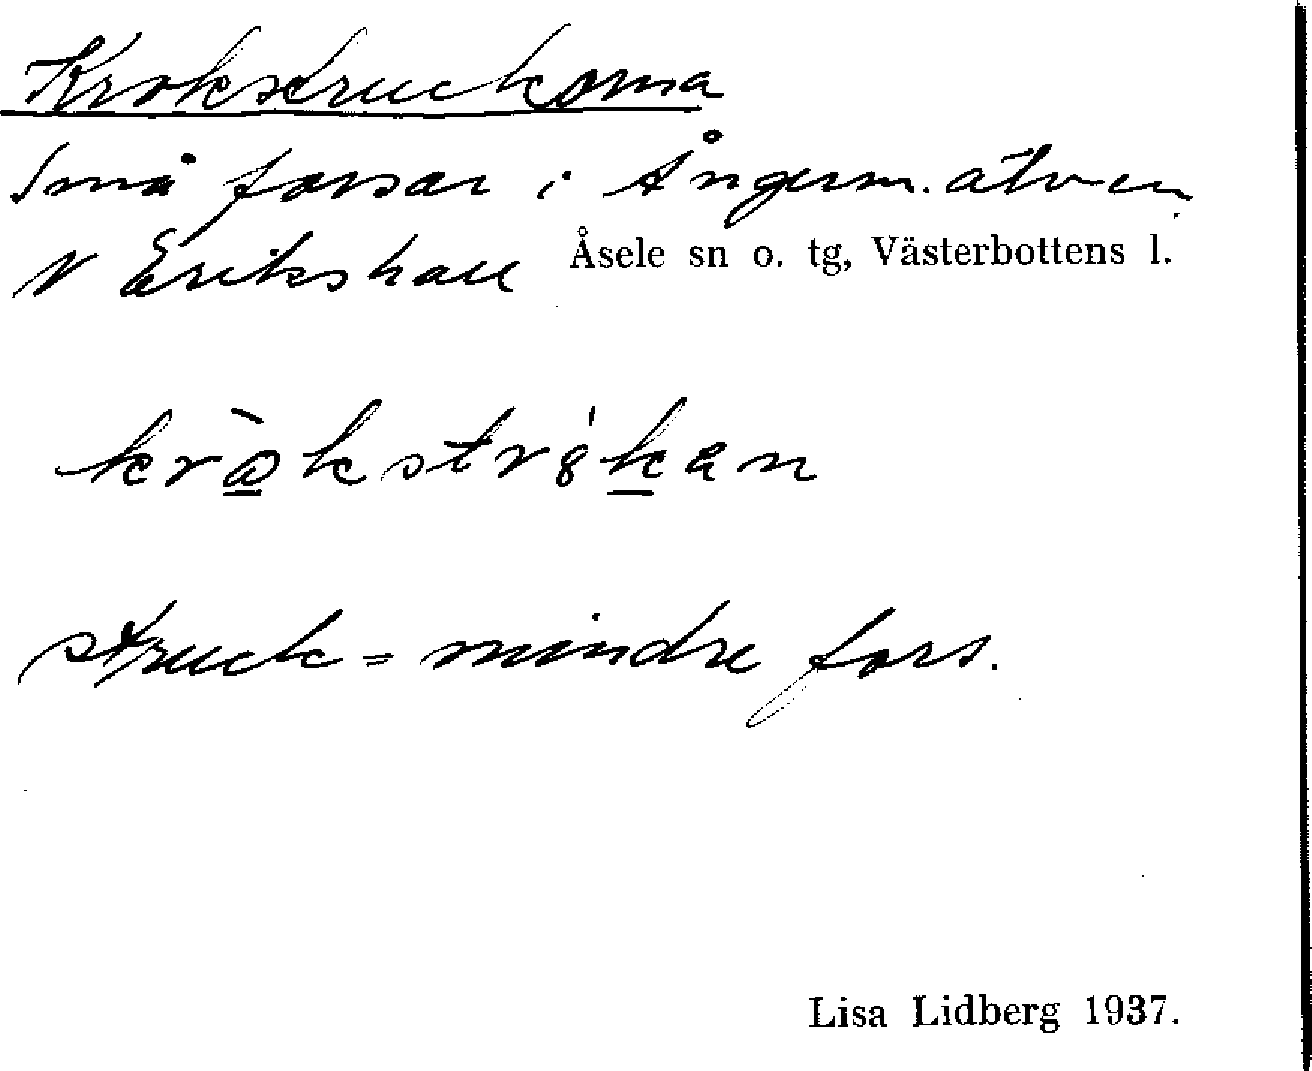 Krokstruckorna
Små forsar i Ångerm. älven
N Erikshall Åsele sn o. tg, Västerbottens l.
struck = mindre fors.
Lisa Lidberg 1937.